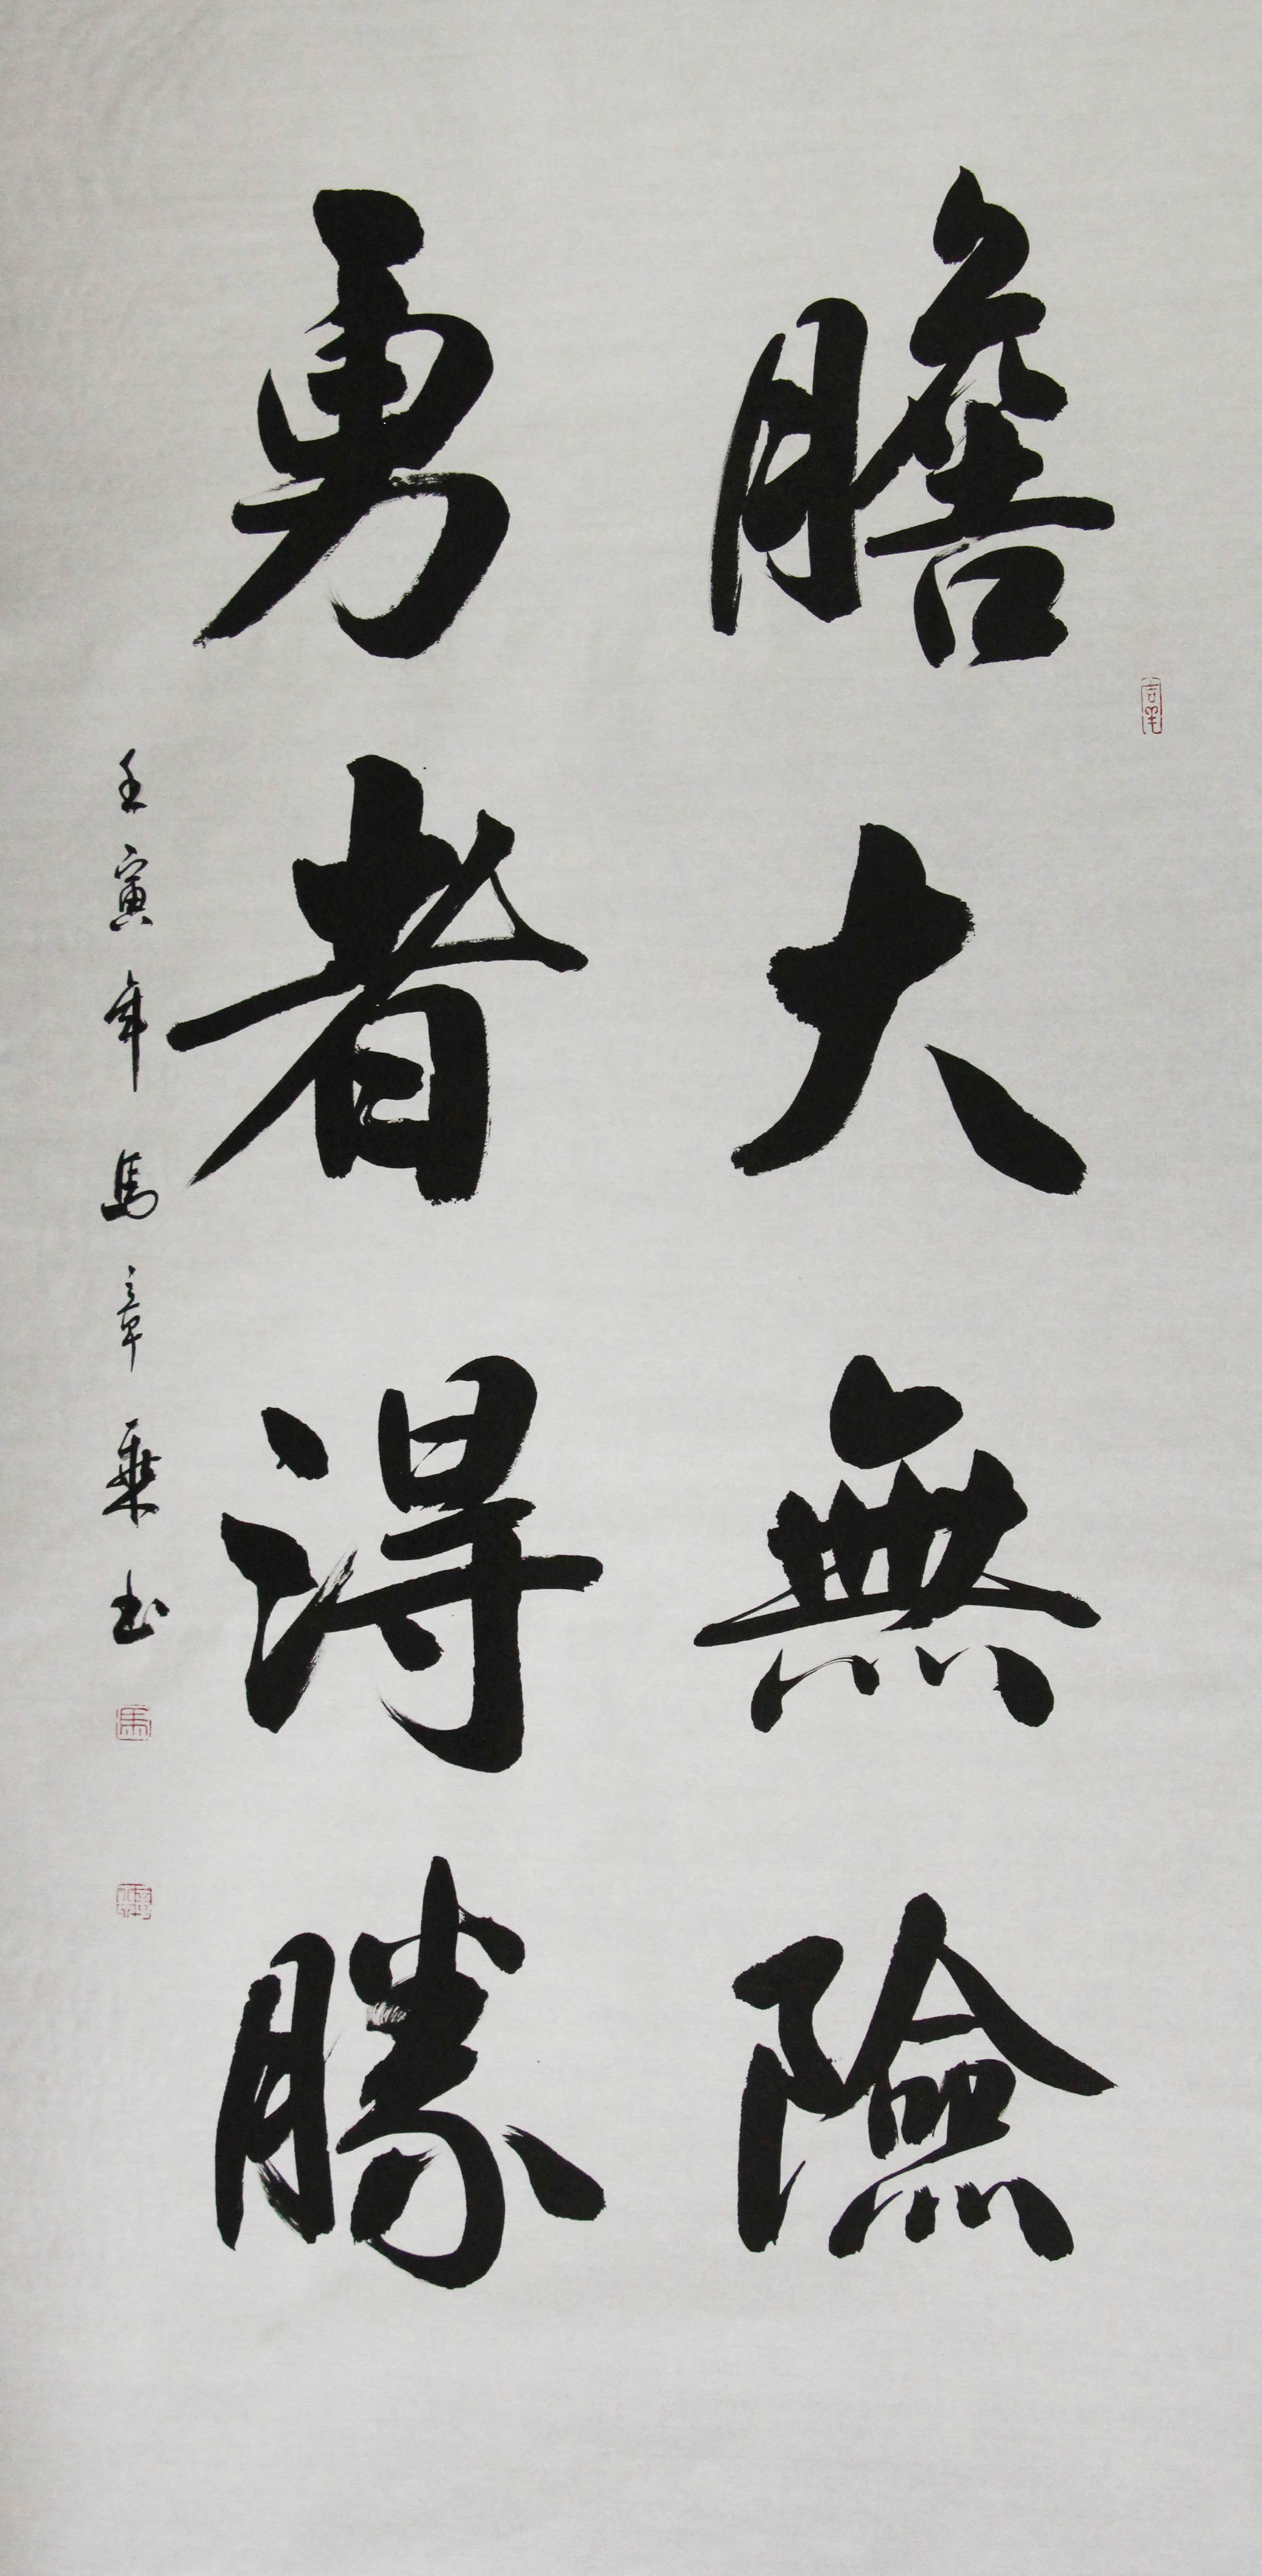 膽大無險
勇者得勝
壬寅年馬章乘書